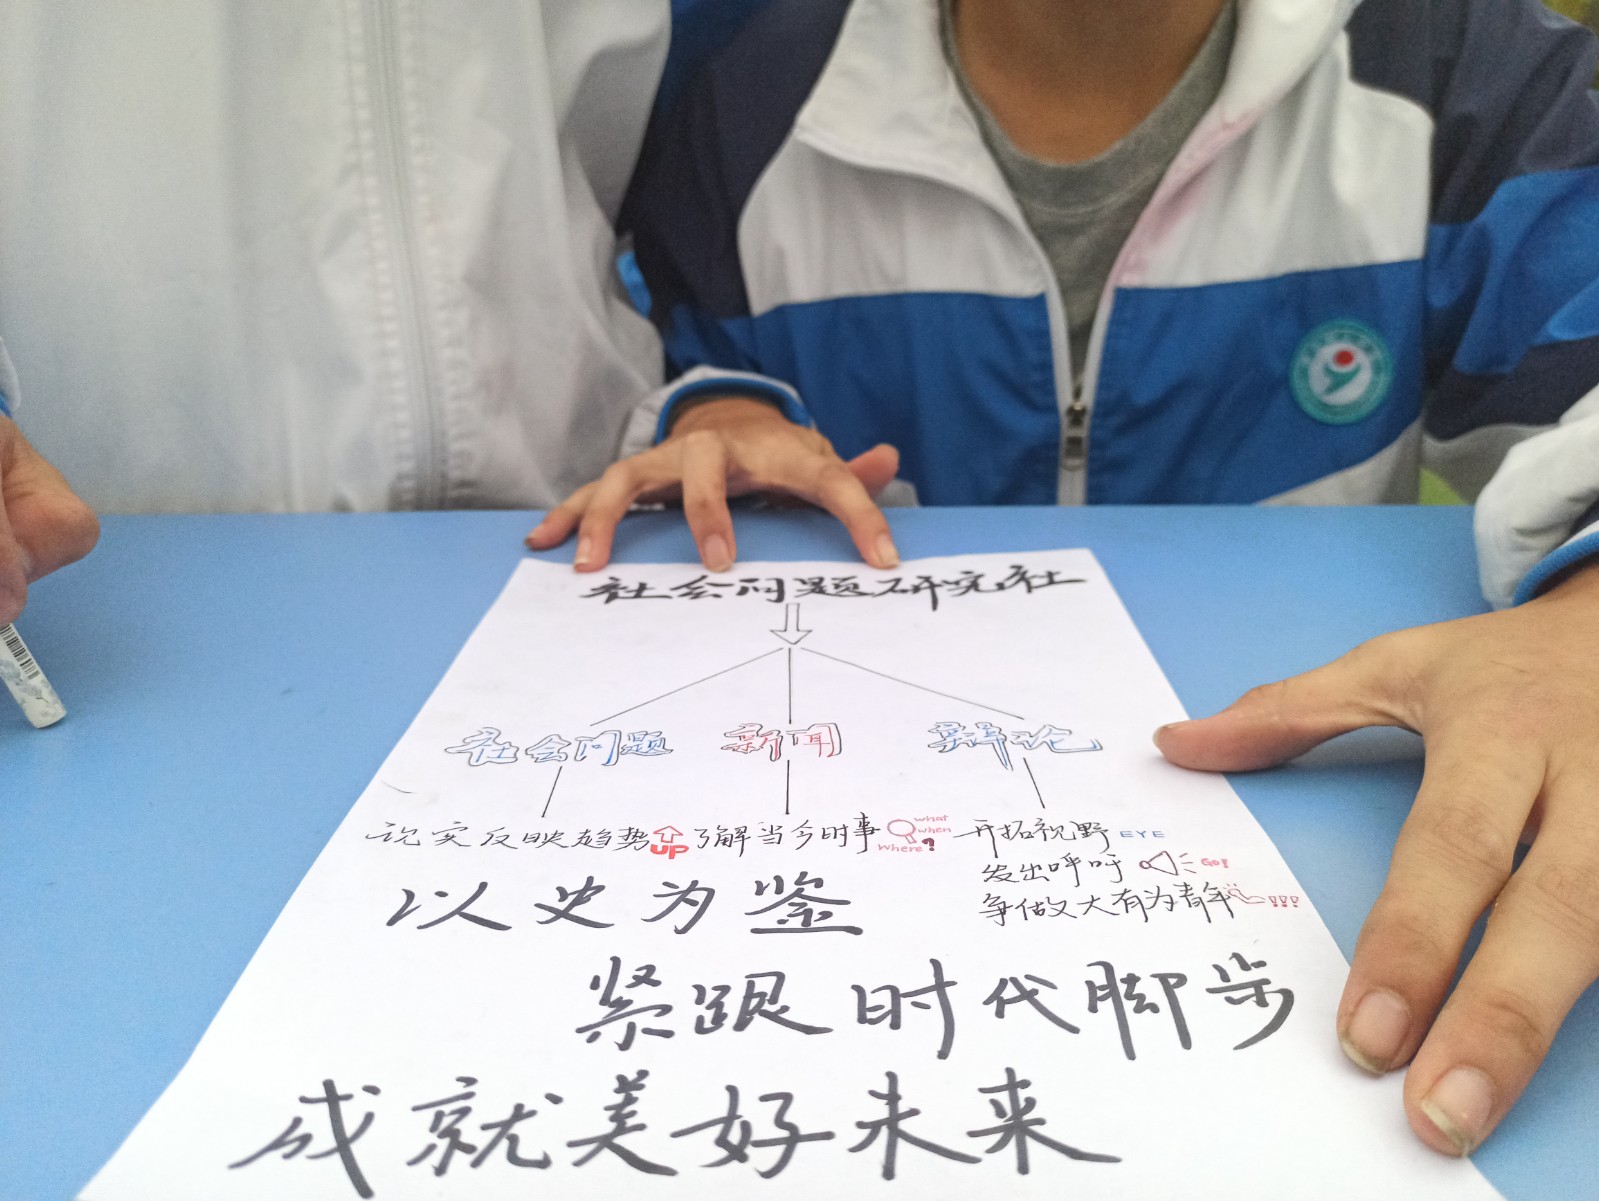 社会问题研究社
社会问题 新闻 辩论
设实反映趋势 UP 了解当今时事 what when where? 开拓视野 EYE
发出呼吁 GO!
争做大有为青年 !!!
以史为鉴
紧跟时代脚步
成就美好未来